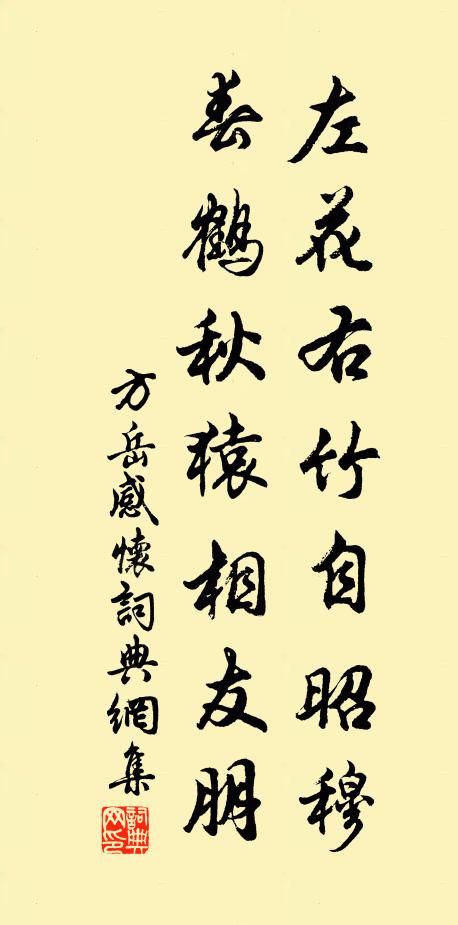 左花右竹自昭穆
春鹤秋猿相友朋
方岳感懷詞典網集
詞典网印